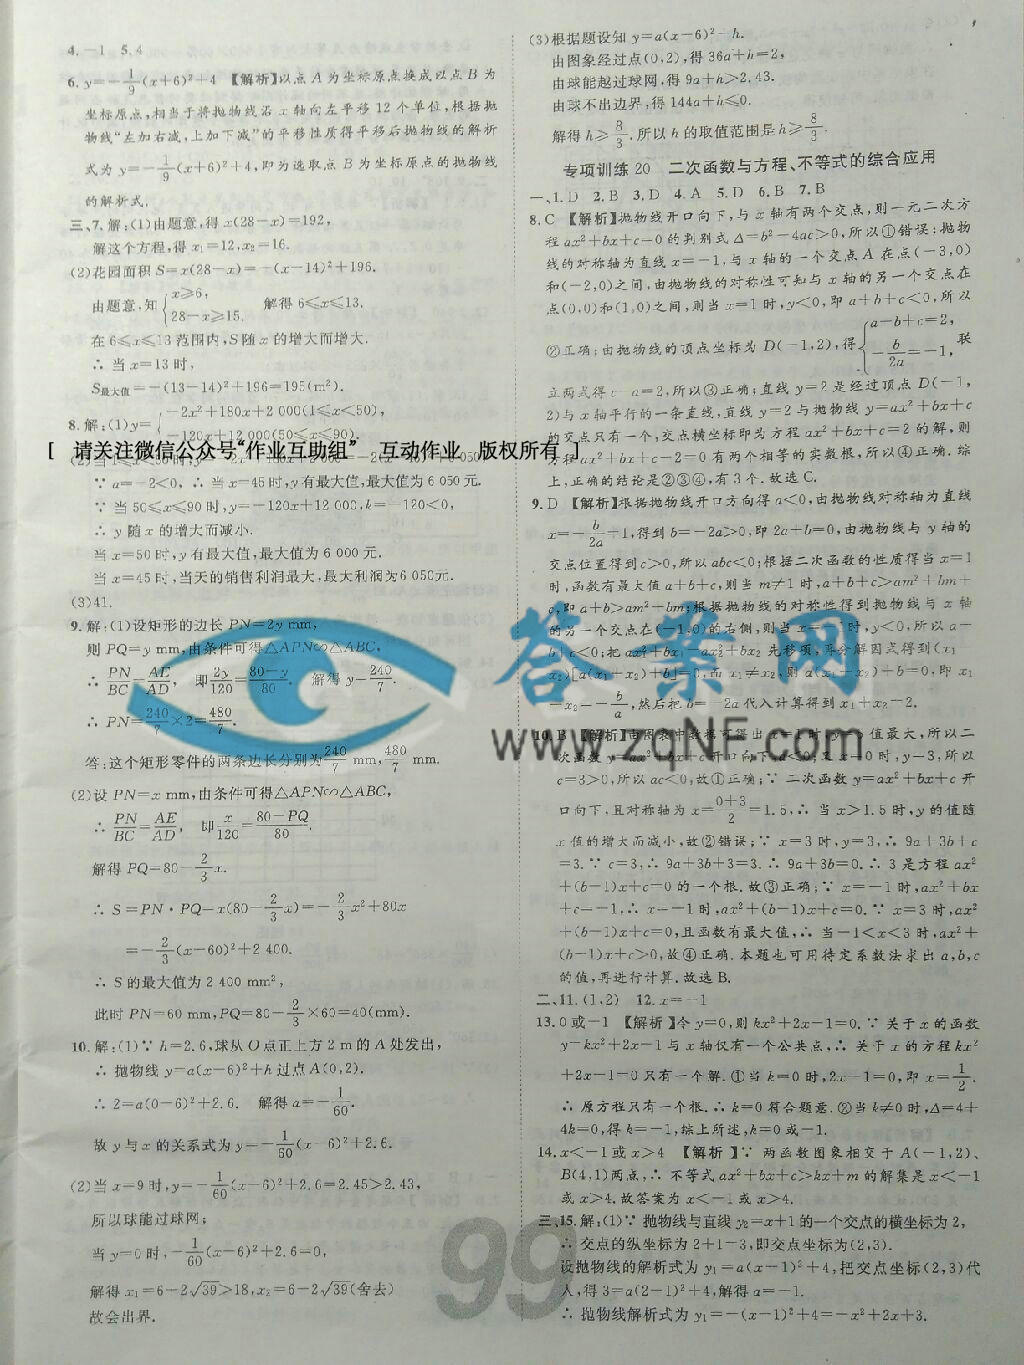 4. －1　5. 4
6. y=－1/9(x+6)²+4　【解析】以点 A 为坐标原点换成以点 B 为
坐标原点,相当于将抛物线沿 x 轴向左平移 12 个单位,根据抛
物线“左加右减,上加下减”的平移性质得平移后抛物线的解析
式为 y=－1/9(x+6)²+4,即为选取点 B 为坐标原点的抛物线
的解析式.
三、7. 解:(1)由题意,得 x(28－x)=192,
解这个方程,得 x₁=12,x₂=16.
(2)花园面积 S=x(28－x)=－(x－14)²+196.
由题意,知{x≥6, 28－x≥15. 解得 6≤x≤13.
在 6≤x≤13 范围内,S 随 x 的增大而增大.
∴ 当 x=13 时,
S最大值=－(13－14)²+196=195(m²).
8. 解:(1)y={－2x²+180x+2 000(1≤x<50), －120x+12 000(50≤x≤90).
[ 请关注微信公众号“作业互助组” 互动作业 版权所有 ]
(2)当 1≤x<50 时,y=－2x²+180x+2 000=－2(x－45)²+6 050.
∵ a=－2<0, ∴ 当 x=45 时,y 有最大值,最大值为 6 050 元.
∵ 当 50≤x≤90 时,y=－120x+12 000,k=－120<0,
∴ y 随 x 的增大而减小.
当 x=50 时,y 有最大值,最大值为 6 000 元.
当 x=45 时,当天的销售利润最大,最大利润为 6 050元.
(3)41.
9. 解:(1)设矩形的边长 PN=2y mm,
则 PQ=y mm,由条件可得△APN∽△ABC,
∴ PN/BC=AE/AD, 即 2y/120=80－y/80. 解得 y=240/7.
∴ PN=240/7×2=480/7.
答:这个矩形零件的两条边长分别为 240/7 mm, 480/7 mm.
(2)设 PN=x mm,由条件可得△APN∽△ABC,
∴ PN/BC=AE/AD, 即 x/120=80－PQ/80.
解得 PQ=80－2/3x.
∴ S=PN·PQ=x(80－2/3x)=－2/3x²+80x
=－2/3(x－60)²+2 400.
∴ S 的最大值为 2 400 mm²,
此时 PN=60 mm,PQ=80－2/3×60=40(mm).
10. 解:(1)∵ h=2.6,球从 O 点正上方 2 m 的 A 处发出,
∴ 抛物线 y=a(x－6)²+h 过点 A(0,2).
∴ 2=a(0－6)²+2.6. 解得 a=－1/60.
故 y 与 x 的关系式为 y=－1/60(x－6)²+2.6.
(2)当 x=9 时,y=－1/60(x－6)²+2.6=2.45>2.43,
所以球能过球网;
当 y=0 时,－1/60(x－6)²+2.6=0,
解得 x₁=6+2√39>18,x₂=6－2√39(舍去)
故会出界.
(3)根据题设知 y=a(x－6)²+h.
由图象经过点(0,2),得 36a+h=2.
由球能越过球网,得 9a+h>2.43.
由球不出边界,得 144a+h≤0.
解得 h≥8/3. 所以 h 的取值范围是 h≥8/3.
专项训练 20　二次函数与方程、不等式的综合应用
一、1. D　2. B　3. D　4. A　5. D　6. B　7. B
8. C　【解析】抛物线开口向下,与 x 轴有两个交点,则一元二次方
程 ax²+bx+c=0 的判别式 Δ=b²－4ac>0,所以①错误;抛物
线的对称轴为直线 x=－1,与 x 轴的一个交点 A 在点(－3,0)
和(－2,0)之间,由抛物线的对称性可知与 x 轴的另一个交点在
点(0,0)和(1,0)之间,则当 x=1 时,y<0,即 a+b+c<0,所以
②正确;由抛物线的顶点坐标为 D(－1,2),得{a－b+c=2, －b/2a=－1, 联
立两式得 c－a=2,所以③正确;直线 y=2 是经过顶点 D(－1,
2)与 x 轴平行的一条直线,直线 y=2 与抛物线 y=ax²+bx+c
的交点只有一个,交点横坐标即为方程 ax²+bx+c=2 的解,则
方程 ax²+bx+c－2=0 有两个相等的实数根,所以④正确. 综
上,正确的结论是②③④,有 3 个. 故选 C.
9. D　【解析】根据抛物线开口方向得 a<0,由抛物线对称轴为直线
x=－b/2a=1,得到 b=－2a>0,即 2a+b=0,由抛物线与 y 轴的
交点位置得到 c>0,所以 abc<0;根据二次函数的性质得当 x=1
时,函数有最大值 a+b+c,则当 m≠1 时,a+b+c>am²+bm+
c,即 a+b>am²+bm;根据抛物线的对称性得到抛物线与 x 轴
的另一个交点在(－1,0)的右侧,则当 x=－1 时,y<0,所以 a－
b+c<0;把 ax₁²+bx₁=ax₂²+bx₂ 先移项,再分解因式得到(x₁－
x₂)[a(x₁+x₂)+b]=0,而 x₁≠x₂,则 a(x₁+x₂)+b=0,即 x₁
+x₂=－b/a,然后把 b=－2a 代入计算得到 x₁+x₂=2.
10. B　【解析】由图表中数据可得出 x=1 时,y 值最大,所以二
次函数 y=ax²+bx+c 开口向下,a<0;又 x=0 时,y=3,所以
c=3>0,所以 ac<0,故①正确;∵ 二次函数 y=ax²+bx+c 开
口向下,且对称轴为 x=0+3/2=1.5,∴ 当 x>1.5 时,y 的值随
x 值的增大而减小,故②错误;∵ x=3 时,y=3,∴ 9a+3b+c
=3. ∵ c=3,∴ 9a+3b+3=3. ∴ 9a+3b=0. ∴ 3 是方程 ax²
+(b－1)x+c=0 的一个根. 故③正确;∵ x=－1 时,ax²+bx
+c=－1,∴ x=－1 时,ax²+(b－1)x+c=0. ∵ x=3 时,ax²
+(b－1)x+c=0,且函数有最大值,∴ 当－1<x<3 时,ax²+
(b－1)x+c>0,故④正确. 本题也可用待定系数法求出 a,b,c
的值,再进行计算. 故选 B.
二、11. (1,2)　12. x=－1
13. 0 或－1　【解析】令 y=0,则 kx²+2x－1=0. ∵ 关于 x 的函数
y=kx²+2x－1 与 x 轴仅有一个公共点,∴ 关于 x 的方程 kx²
+2x－1=0 只有一个解. ①当 k=0 时,2x－1=0,即 x=1/2.
∴ 原方程只有一个根. ∴ k=0 符合题意. ②当 k≠0 时,Δ=4+
4k=0,得 k=－1,综上所述,k=0 或－1.
14. x<－1 或 x>4　【解析】∵ 两函数图象相交于 A(－1,2)、
B(4,1)两点,∴ 不等式 ax²+bx+c>kx+m 的解集是 x<－1
或 x>4. 故答案为 x<－1 或 x>4.
三、15. 解:(1)∵ 抛物线与直线 y₂=x+1 的一个交点的横坐标为 2,
∴ 交点的纵坐标为 2+1=3,即交点坐标为(2,3).
设抛物线的解析式为 y₁=a(x－1)²+4,把交点坐标(2,3)代
人,得 3=a(2－1)²+4,解得 a=－1.
∴ 抛物线解析式为 y₁=－(x－1)²+4=－x²+2x+3.
答案网
www.zqNF.com
99